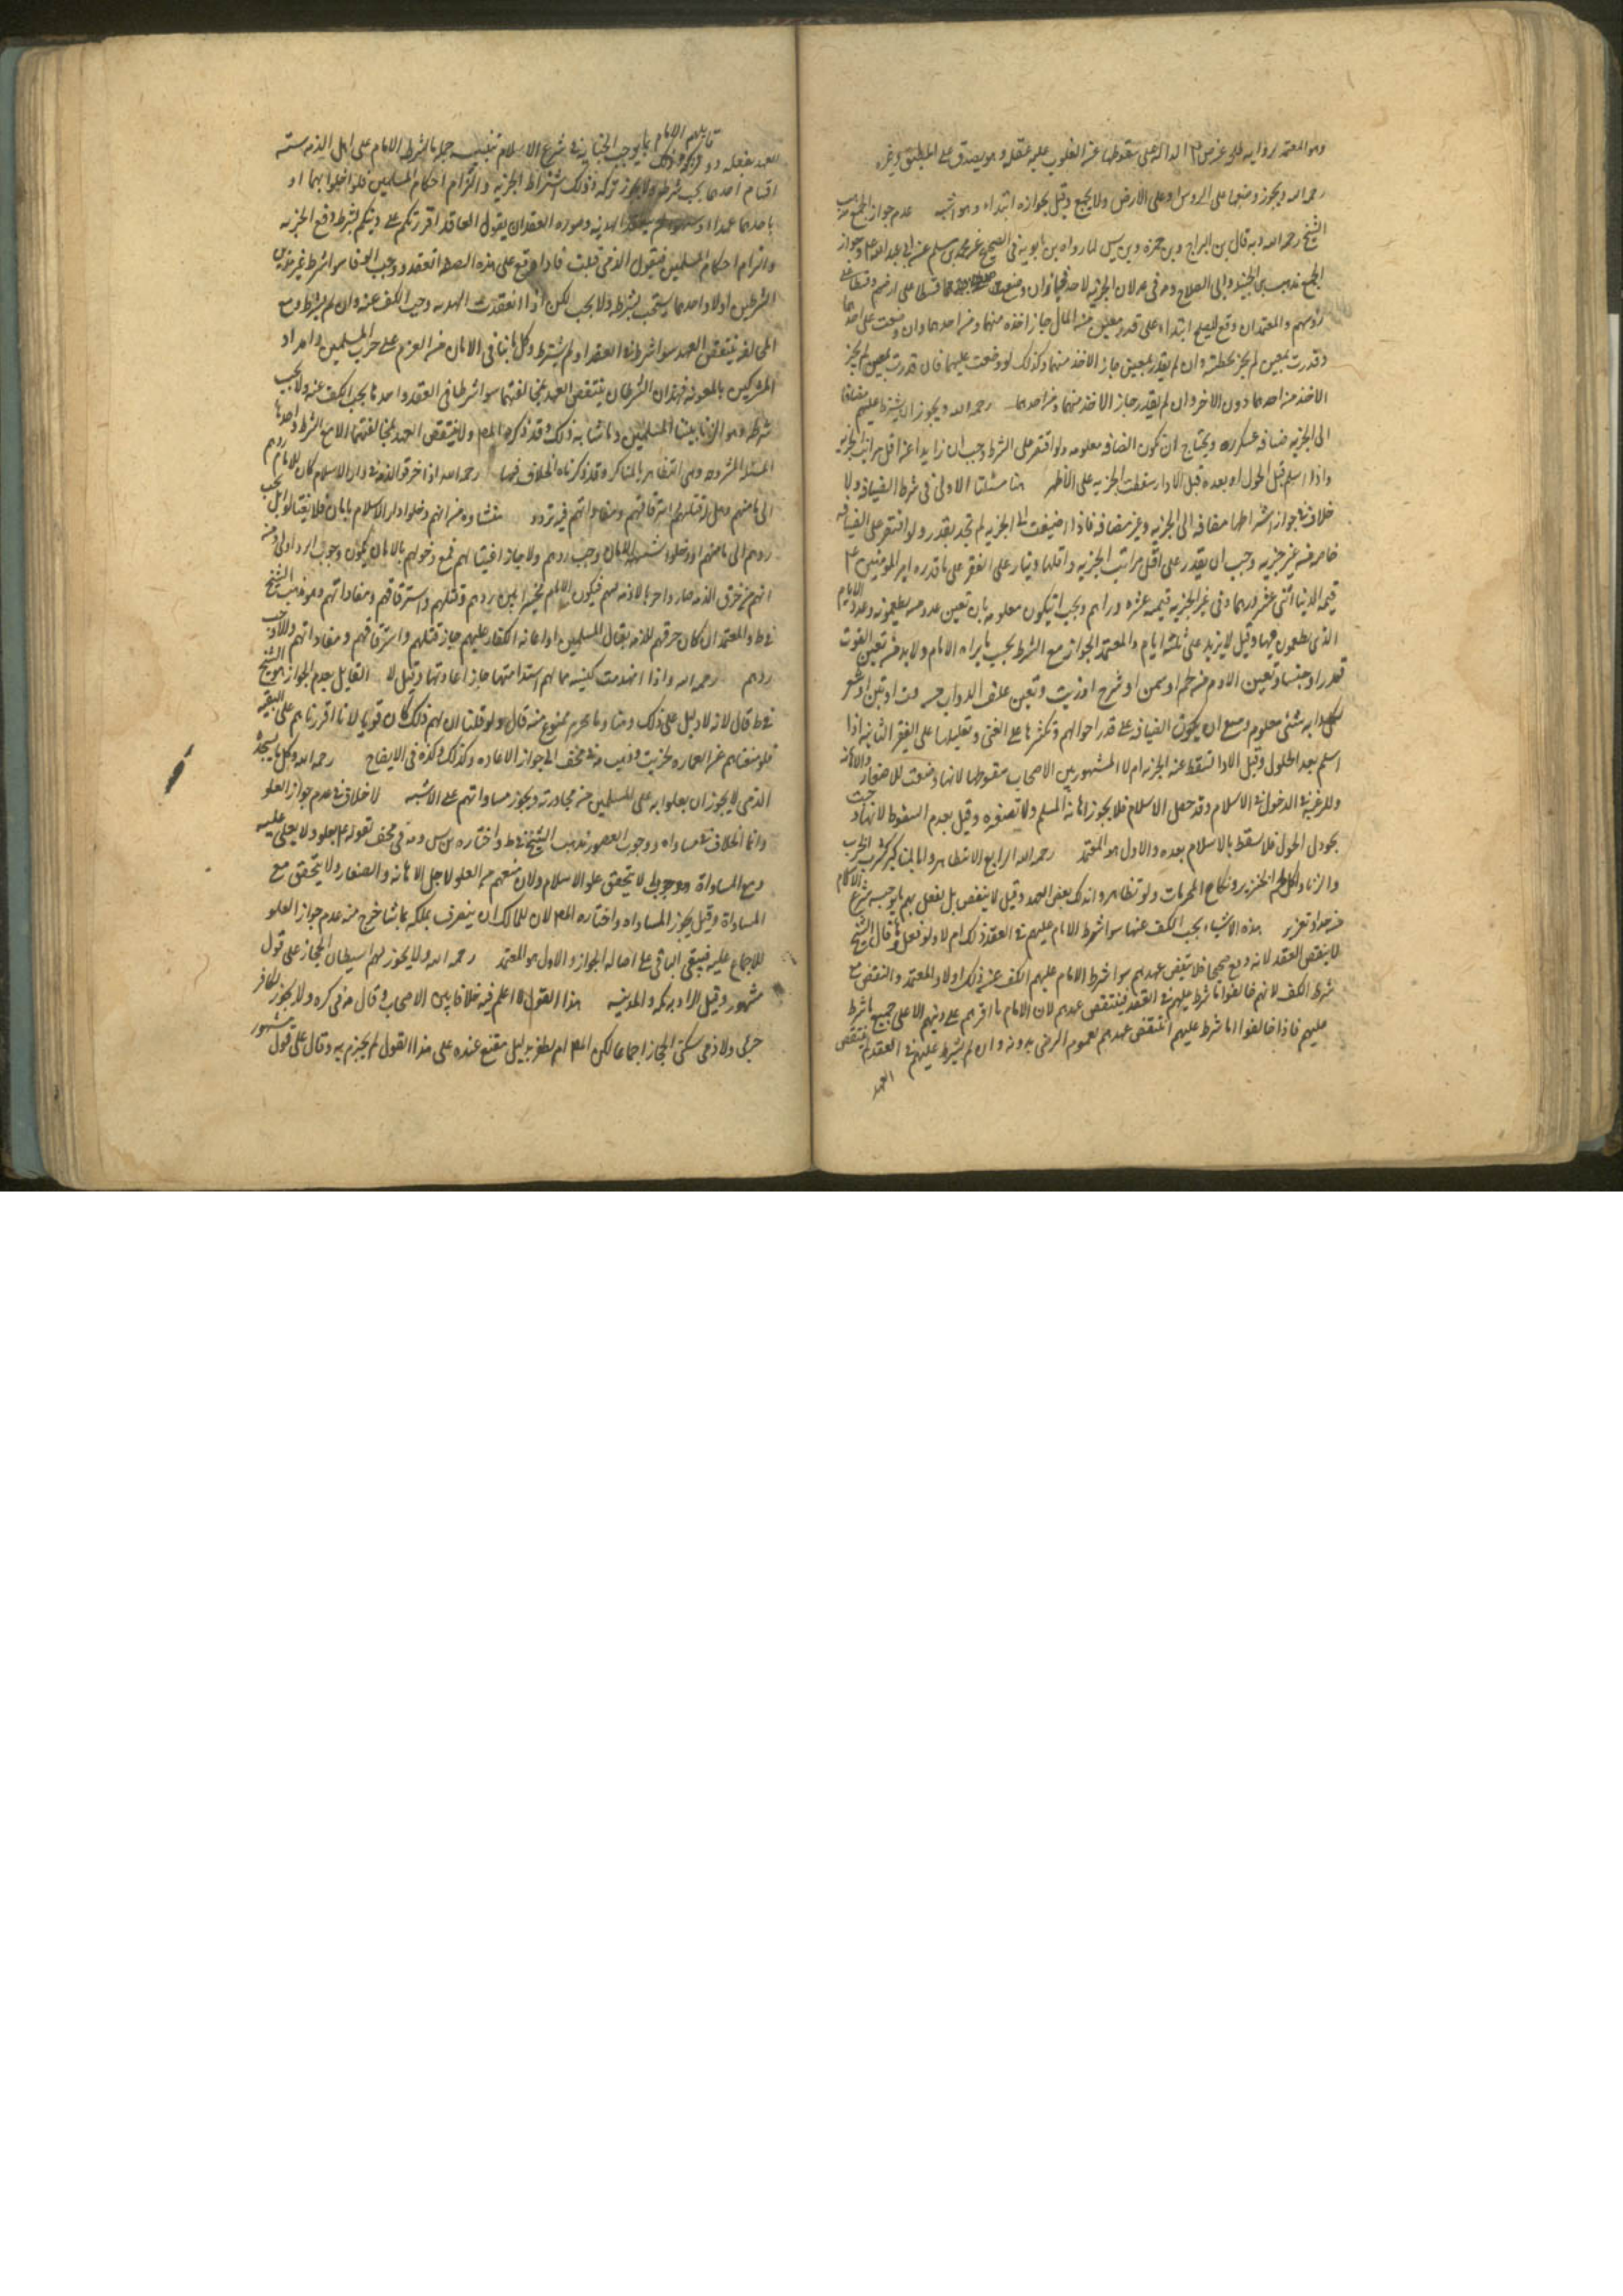 وهو المعتمد لرواية طلحة عن ص ع الدالة على سقوطها عن المغلوب عليه عقله وهو يصدق على المطبق وغيره
رحمه الله ويجوز وضعها على الرؤس او على الارض ولا يجمع وقيل بجوازه ابتداء وهو اشبه عدم جواز الجمع مذهب
الشيخ رحمه الله وبه قال بن البراج وبن حمزه وبن ادريس لما رواه بن بابويه في الصحيح عن محمد بن مسلم عن ابي عبد الله ع وجواز
الجمع مذهب بن الجنيد وابي الصلاح لان الجزيه لا حد لها فجاز ان وضعت قسطا على ارضهم وقسطا على
رؤسهم والمعتمد ان وقع الصلح ابتداء على قدر معين من المال جاز اخذه منهما ومن احدهما وان وضعت على احدهما
وقدرت بمعين لم يجز تخطيه وان لم يقدر بمعين جاز الاخذ منهما وكذلك لو وضعت عليهما فان قدرت بمعين لم يجز
الاخذ من احدهما دون الاخر وان لم يقدر جاز الاخذ منهما ومن احدهما رحمه الله ويجوز ان يشترط عليهم مضافا
الى الجزيه ضيافه عسكره ويحتاج ان تكون الضيافه معلومه ولو اقتصر على الشرط وجب ان زايدا عن اقل مراتب الجزيه
واذا اسلم قبل الحول او بعده قبل الادا سقطت الجزيه على الاظهر هنا مسئلتان الاولى في شرط الضيافه ولا
خلاف في جواز اشتراطها مضافه الى الجزيه وغير مضافه فاذا اضيفت الى الجزيه لم تحد بقدر ولو اقتصر على الضيافه
خاصه من غير جزيه وجب ان يقدر على اقل مراتب الجزيه واقلها دينار على الفقير على ما قدره امير المؤمنين ع
قيمه الدينار اثنى عشر درهما وفي غير الجزيه قيمه عشره دراهم ويجب ان يكون معلومه بان تعين عدد من يطعمونه وعدد الايام
الذي يطعمون فيها وقيل لا يزيد على ثلثه ايام والمعتمد الجواز مع الشرط بحسب ما يراه الامام ولا بد من تعين القوت
قدرا وجنسا وتعين الادم من لحم او سمن او شيرج او زيت وتعين علف الدواب من قت او تبن او شعير
لكل دابه شئ معلوم ينبغي ان يكون الضيافه على قدر احوالهم وتكثرها على الغني وتقليلها على الفقير الثانيه اذا
اسلم بعد الحلول وقبل الادا اتسقط عنه الجزيه ام لا المشهور بين الاصحاب سقوطها لانها وضعت للصغار والاهانه
وللرغبه في الدخول في الاسلام وقد حصل الاسلام فلا يجوز اهانه المسلم ولا تصغيره وقيل بعدم السقوط لانها وجبت
بحول الحول فلا تسقط بالاسلام بعده والاول هو المعتمد رحمه الله الرابع الا يتظاهروا بالمناكير كشرب الخمر
والزنا واكل لحم الخنزير ونكاح المحرمات ولو تظاهروا بذلك نقض العهد وقيل لا ينقض بل يفعل بهم ما يوجبه شرع الاسلام
من حد او تعزير هذه الاشياء يجب الكف عنها سوا شرط الامام عليهم في العقد ذلك ام لا ولو فعلوها قال الشيخ
لا ينتقض العقد لانه وقع صحيحا فلا ينتقض عهدهم سوا شرط الامام عليهم الكف عن ذلك او لا والمعتمد والنقض مع
شرط الكف لانهم خالفوا ما شرط عليهم في العقد فينتقض عهدهم لان الامام ما اقرهم على دينهم الا على جميع ما شرط
عليهم فاذا خالفوا ما شرط عليهم انتقض عهدهم لعموم الرضى بدونه وان لم يشترط عليهم في العقد لم ينتقض
العهد
العهد بفعله ما يوجب الجنايه في شرع الاسلام تنبيه جمله ما يشترط الامام على اهل الذمه سته
اقسام احدها يجب شرطه ولا يجوز تركه وذلك اشتراط الجزيه والتزام احكام المسلمين فلو اخلوا بهما او
باحدهما عمدا الهدنه وصوره العقد ان يقول العاقد اقررتكم على دينكم بشرط دفع الجزيه
والتزام احكام المسلمين فيقول الذمي قبلت فاذا وقع على هذه الصيغه انعقد ووجب الوفا سوا شرط غير هذين
الشرطين او لا واحدها يستحب شرطه ولا يجب لكن اذا انعقدت الهدنه وجب الكف عنه وان لم يشرط ومع
المخالفه ينتقض العهد سوا شرط في العقد او لم يشترط وكل ما ينافي الامان من العزم على حرب المسلمين وامداد
المشركين بالمعونه فهذان الشرطان ينتقض العهد بمخالفتهما سوا شرطا في العقد واحدها يجب الكف عنه ولا يجب
شرطه وهو الزنا بنسا المسلمين وما شابه ذلك وقد ذكره المص ولا ينتقض العهد بمخالفتهما الا مع الشرط واحدها
المسئله المشروحه وهي التظاهر بالمناكر وقد ذكرناه الخلاف فيها رحمه الله اذا خرق الذمه في دار الاسلام كان للامام ردهم
الى مامنهم وهل له قتلهم واسترقاقهم ومفاداتهم فيه تردد منشاوه من انهم دخلوا دار الاسلام بامان فلا يغتالوا بل يجب
ردهم الى مامنهم او دخلوا بشبهه الامان وجب ردهم ولا جاز اغتيالهم فمع دخولهم بالامان يكون وجوب الرد اولى ومن
انهم من خرق الذمه صار حربا لا ذمه لهم فيكون الامام مخير بين ردهم وقتلهم واسترقاقهم ومفاداتهم وهو مذهب الشيخ
في ط والمعتمد ان كان خرقهم للذمه بقتال المسلمين او اعانه الكفار عليهم جاز قتلهم واسترقاقهم ومفاداتهم والا وجب
ردهم رحمه الله واذا انهدمت كنيسه مما لهم استدامتها جاز اعادتها وقيل لا القايل بعدم الجواز هو الشيخ
في ط قال لانه لا دليل على ذلك وبناوها محرم ممنوع منه قال ولو قلنا ان لهم ذلك كان قويا لانا اقررناهم على التبقيه
فلو منعناهم عن العماره لخربت وذهب في مختلف الى جواز الاعاده وكذلك ولده في الايضاح رحمه الله وكل ما يستجده
الذمي لا يجوز ان يعلو به على المسلمين من مجاوريه ويجوز مساواتهم على الاشبه لا خلاف في عدم جواز العلو
وانما الخلاف في مساواه ووجوب القصور مذهب الشيخ في ط واختاره بن ادريس وفي مختلف لقوله ع يعلو ولا يعلى عليه
ومع المساواة لا يتحقق علو الاسلام ولان منعهم من العلو لاجل الاهانه والصغار ولا يتحقق مع
المساواة وقيل يجوز المساواه واختاره المص لان للمالك ان يتصرف بملكه بما شا خرج منه عدم جواز العلو
للاجماع عليه فيبقى الباقي على اصاله الجواز والاول هو المعتمد رحمه الله ولا يجوز لهم استيطان الحجاز على قول
مشهور وقيل المراد به مكه والمدينه هذا القول لا اعلم فيه خلافا بين الاصحاب وقال في كره ولا يجوز لكافر
حربي ولا ذمي سكنى الحجاز اجماعا لكن المص لم يظفر بدليل مقنع عنده على هذا القول لم يجزم به وقال على قول مشهور